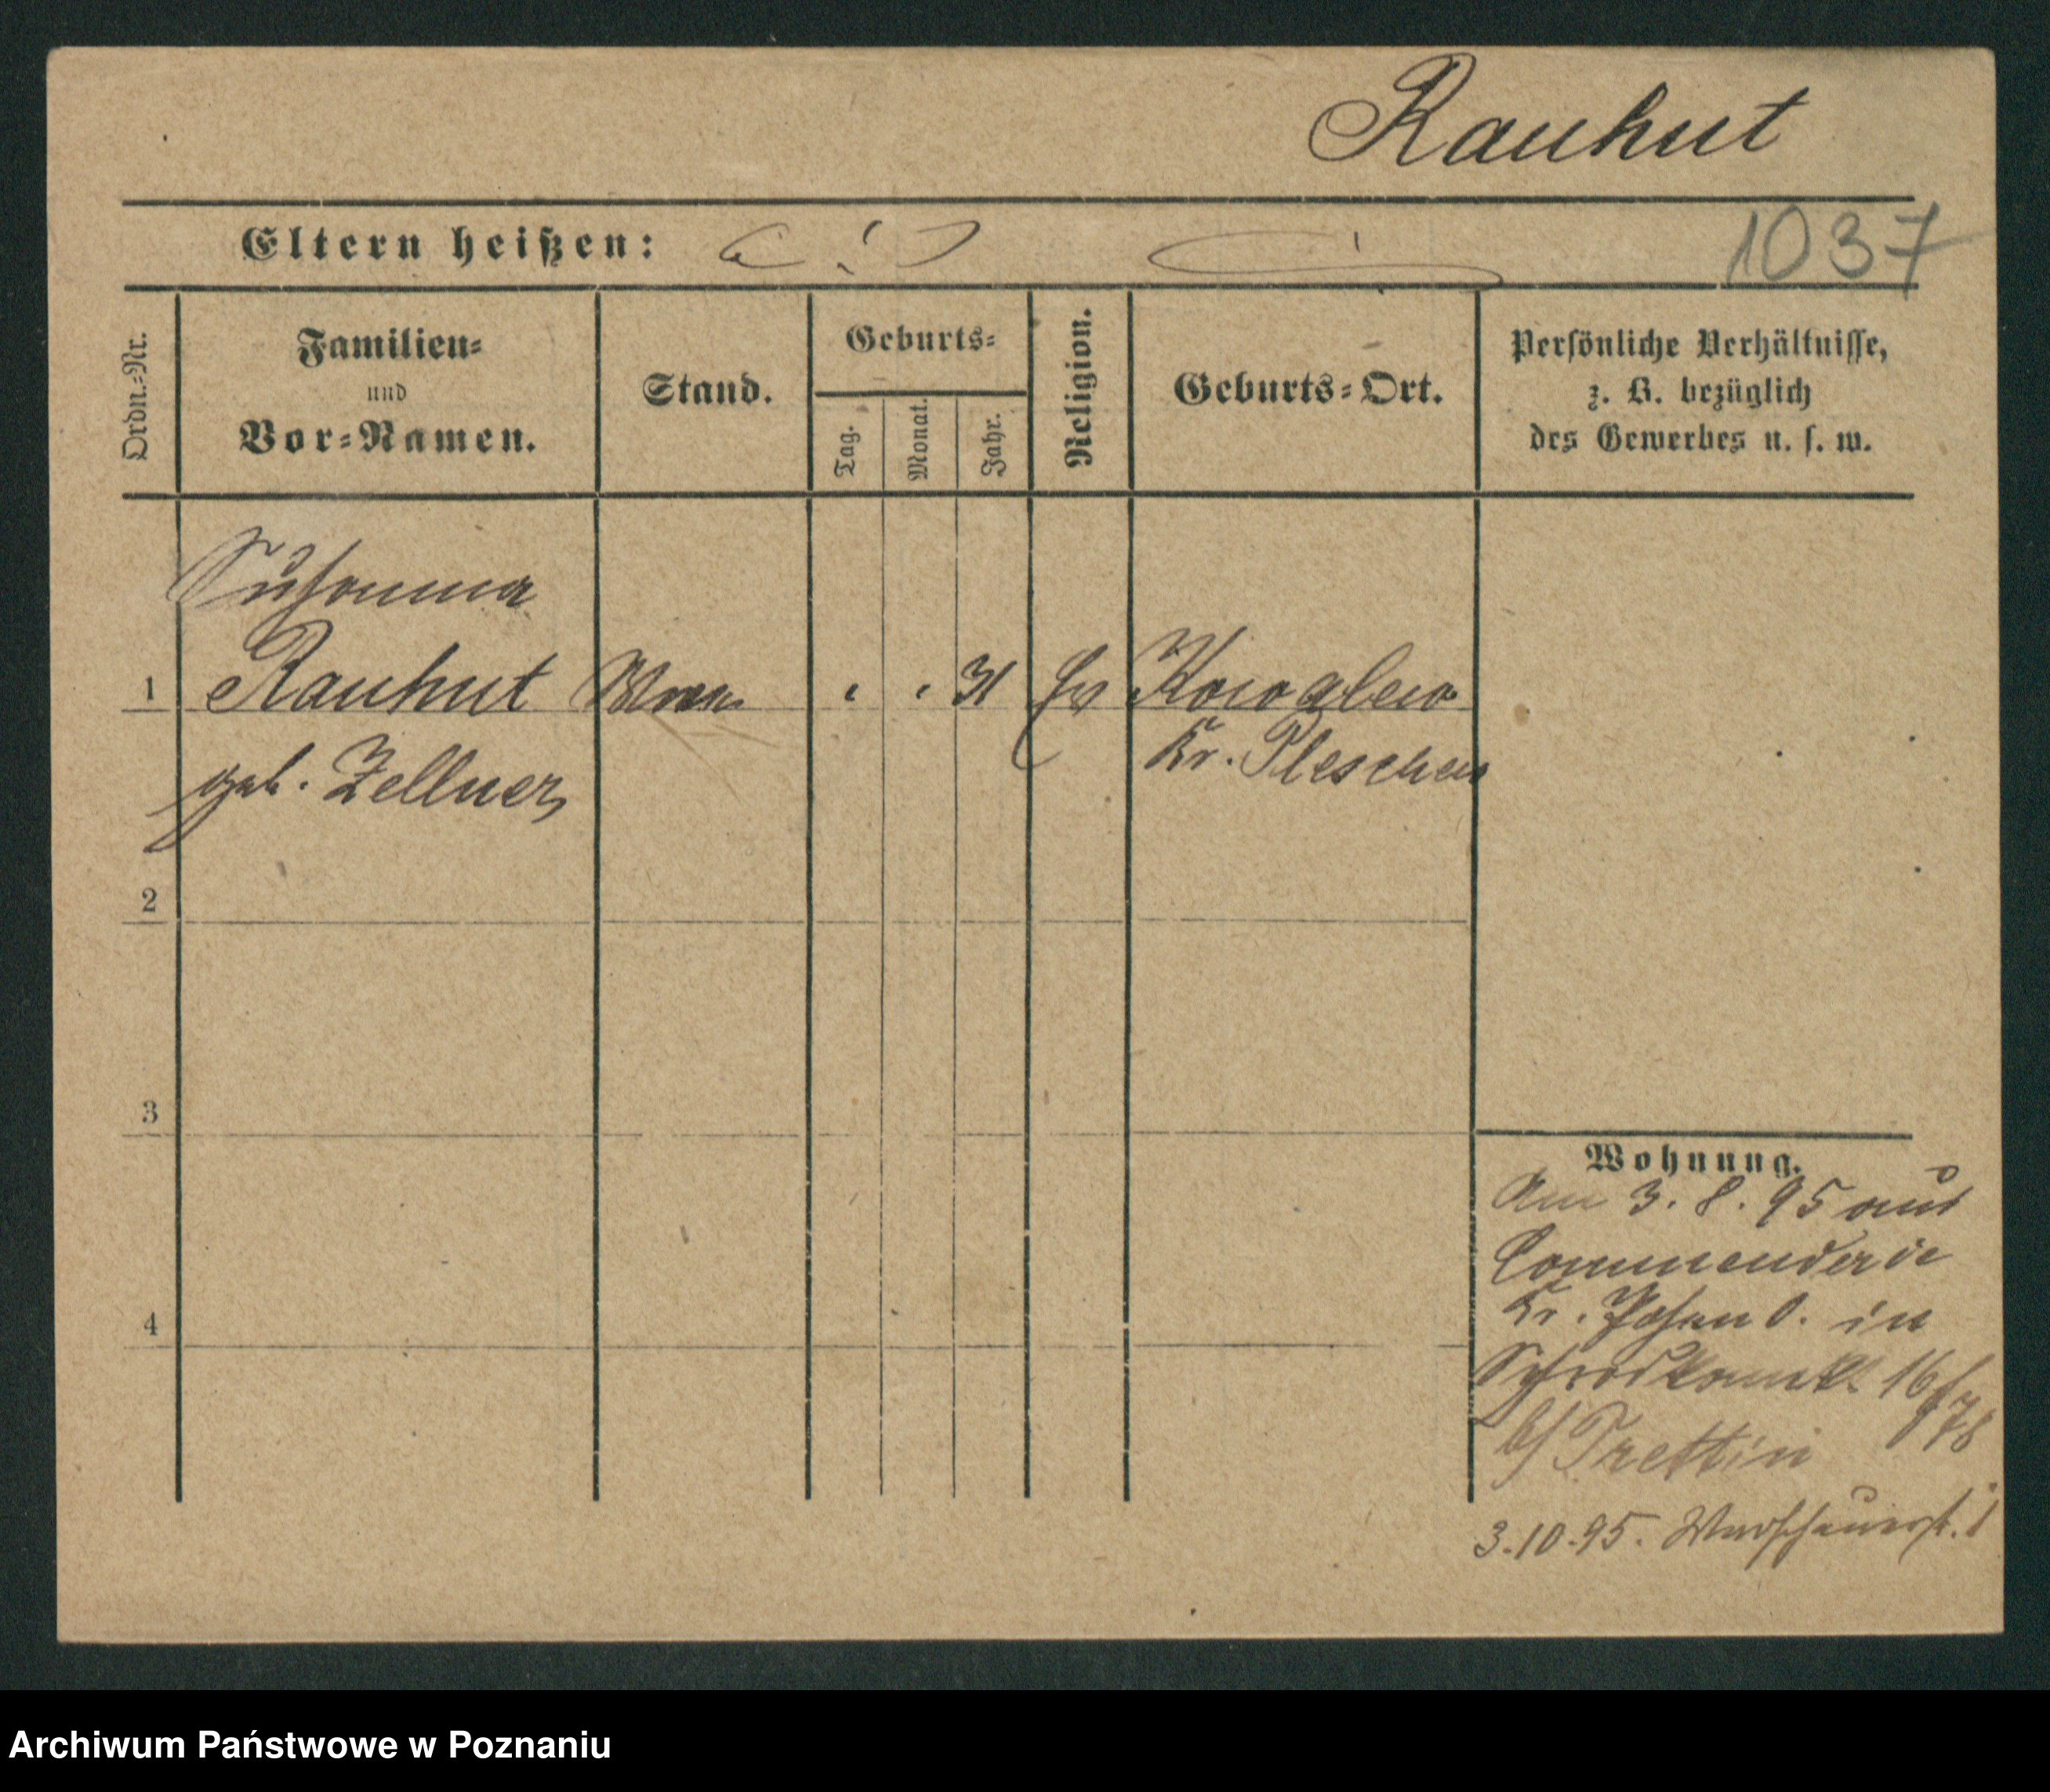 Rauhut
Eltern heißen:
1037
Ordn.-Nr.
Familien-
und
Vor-Namen.
Stand.
Geburts-
Tag.
Monat.
Jahr.
Religion.
Geburts-Ort.
Persönliche Verhältnisse,
z. B. bezüglich
des Gewerbes u. s. w.
Susanna
1 Rauhut 31 Ev Kowalewo
geb. Zellner
Kr. Pleschen
2
3
4
Wohnung.
Am 3. 8. 95 aus
Commenderie
Kr. Posen O. in
16
b/ Trettin
3.10.95. Warschauerst. 1
Archiwum Państwowe w Poznaniu